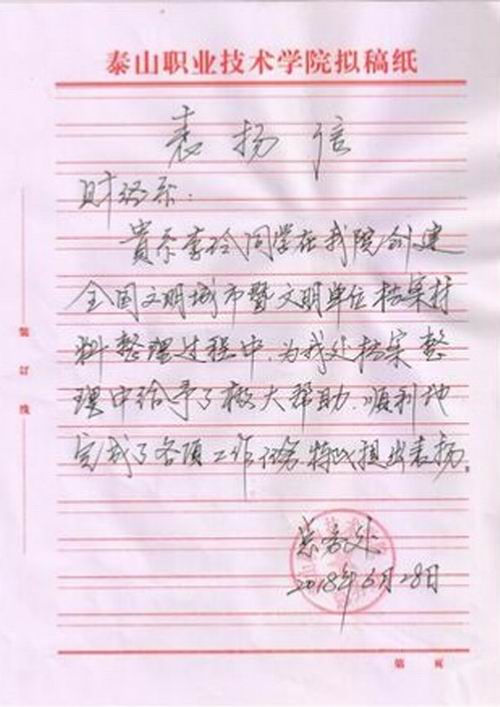 泰山职业技术学院拟稿纸
表扬信
财经系：
贵系李玲同学在我院创建
全国文明城市暨文明单位档案材
料整理过程中，为我处档案整
理中给予了极大帮助，顺利地
完成了各项工作任务，特此提出表扬。
总务处
2018年6月28日
装订线
第 页